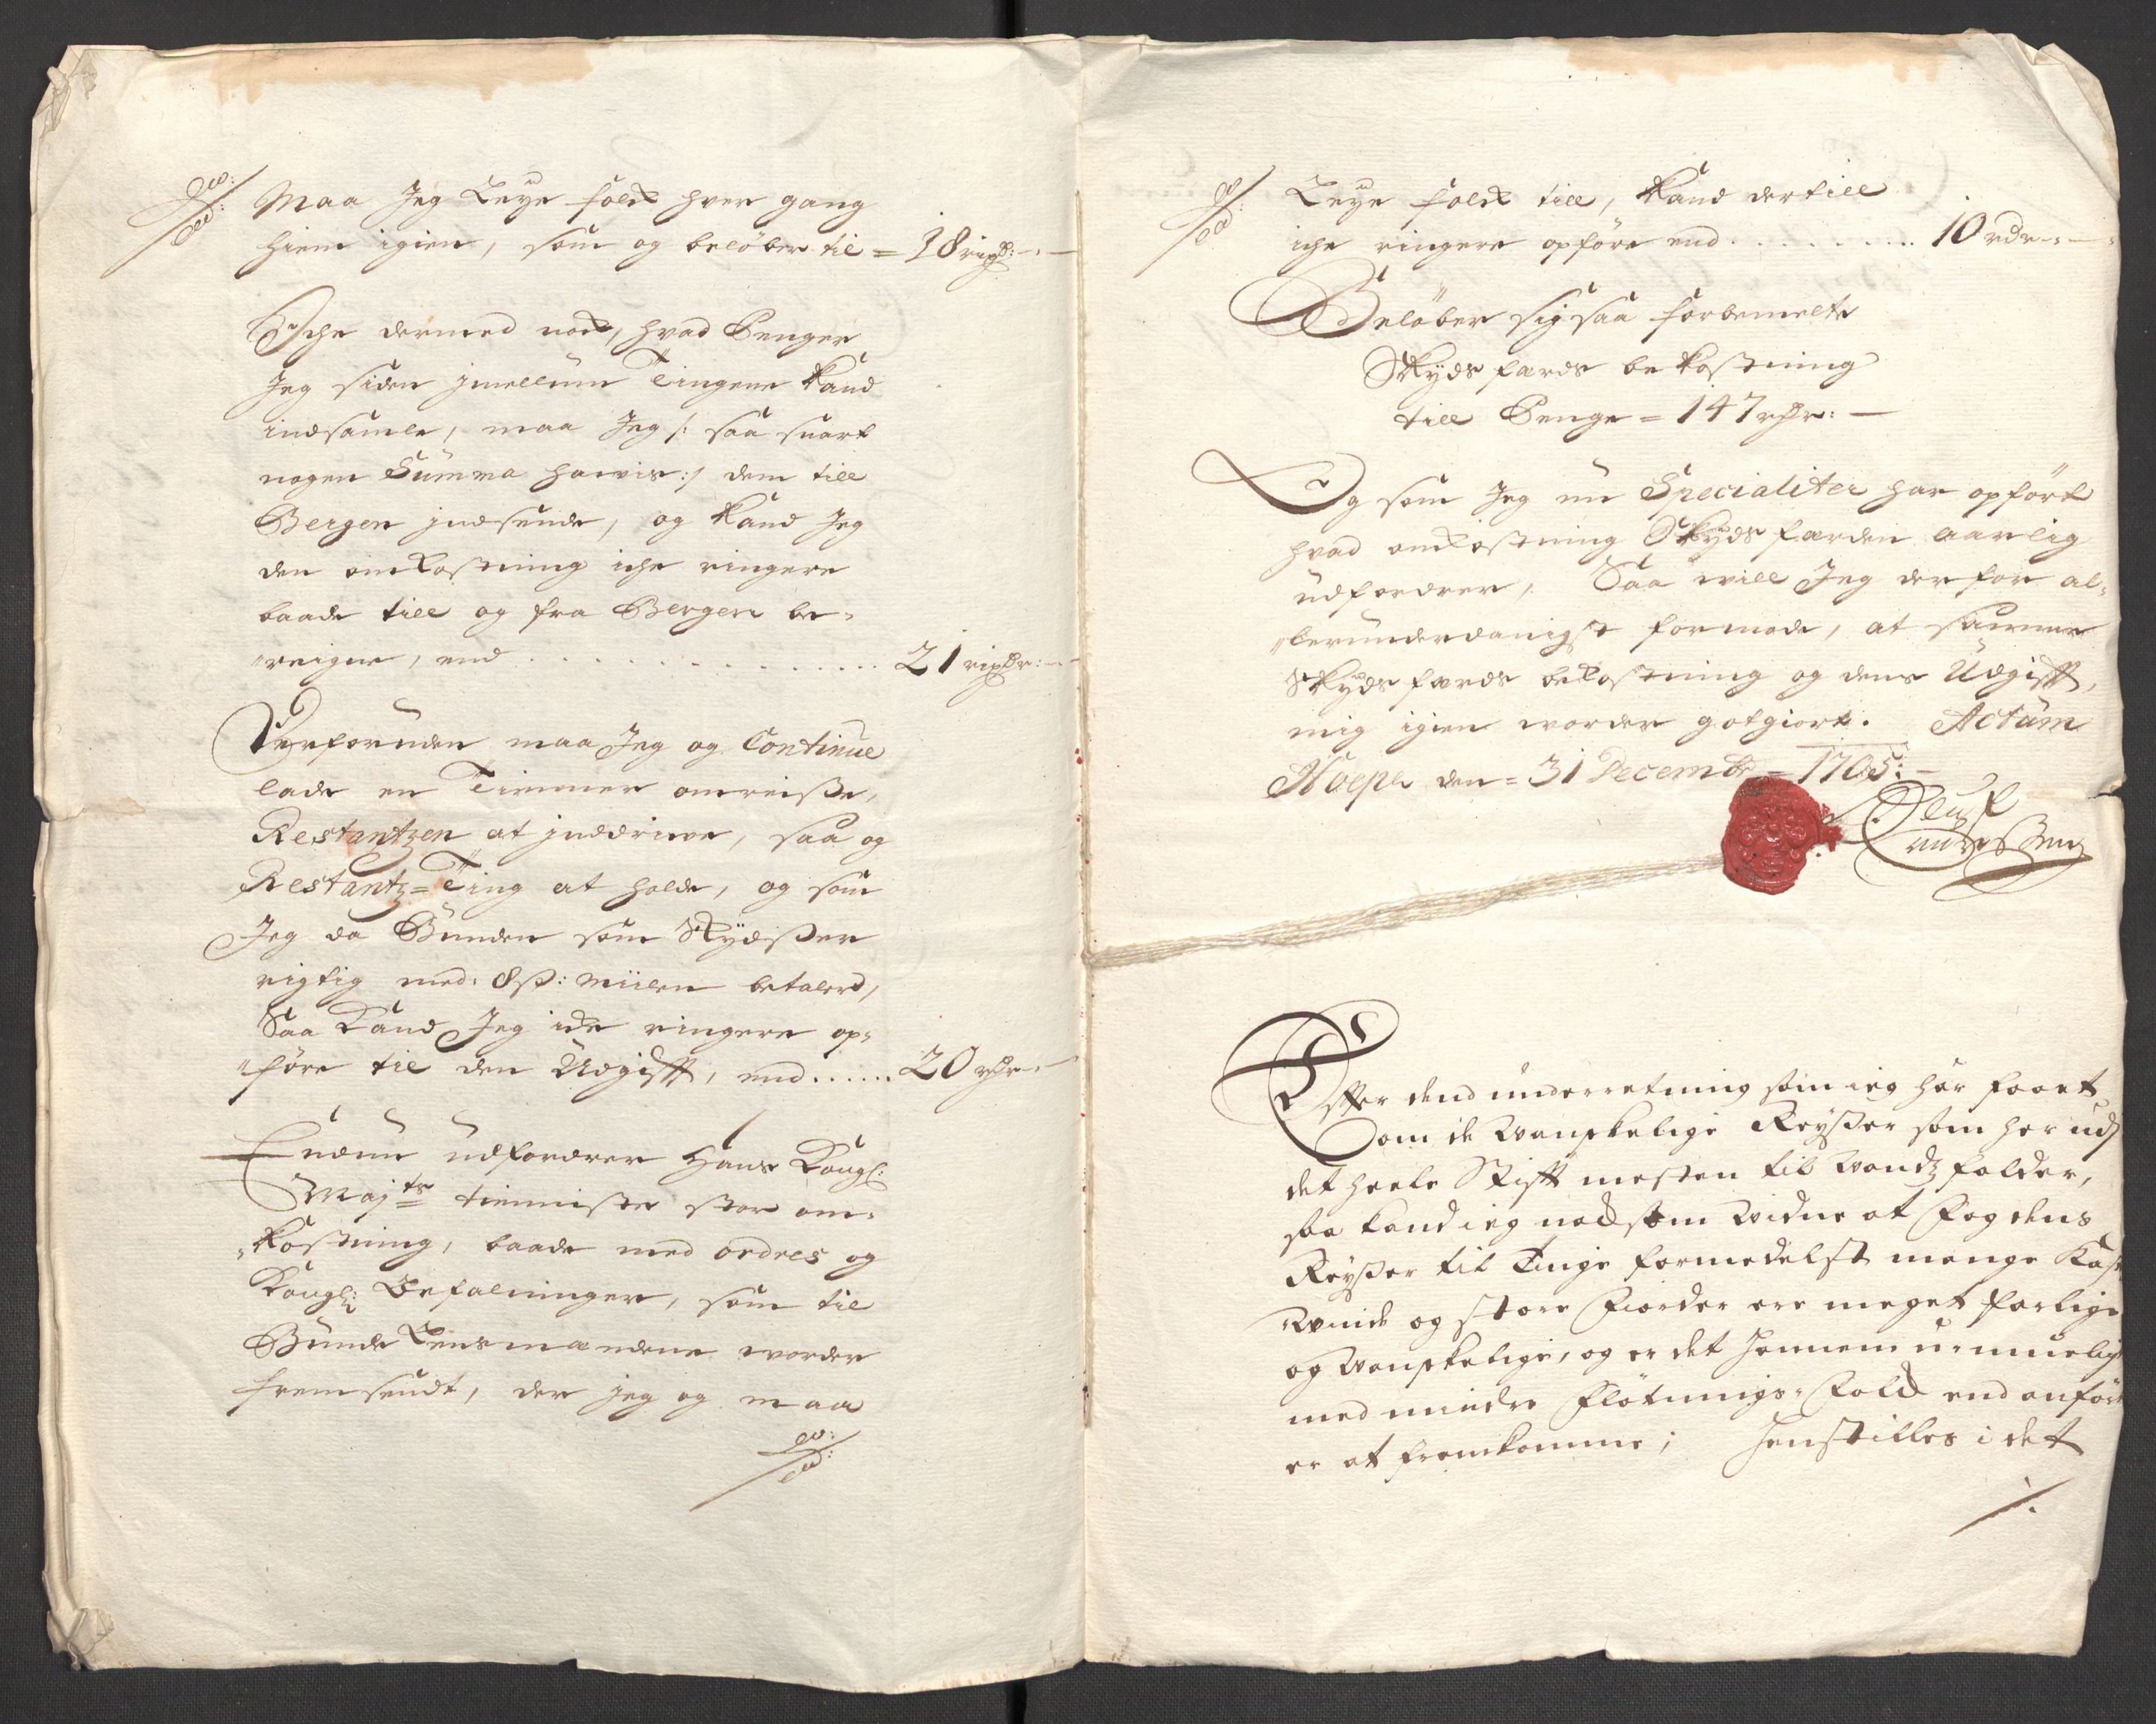 Maa Jeg Leye folck hver gang
hiem igien, som og beløber til = 18 rixdr:
Iche dermed nock, hvad Penger
Jeg siden imellum Tingene kand
indsamle, maa Jeg /: saa snart
nogen Summa haves :/ dem till
Bergen indsende, og kand Jeg
den omkostning iche ringere
baade till og fra Bergen be-
reigne, end 21 rixdr:
Derforuden maa Jeg og Continue
lade en Tienner omreisse,
Restantzen at inddrive, saa og
Restantz=Ting at holde, og som
Jeg da Bunden som Skydsser
rigtig med 8 s: Miilen betaler,
Saa kand Jeg icke ringere op-
føre til den Udgifft, end 20 rdr
Endnu udfordrer Hans Kongl:
Majts tienniste stor om-
kostning, baade med ordres og
Kongl: Befalninger, som til
Bunde Lensmændene worder
fremsendt, der jeg og maa
Leye folck till, kand dertill
iche ringere opføre end 10 rdr
Beløber sig saa forbemelte
Skyds færds bekostning
till Penge = 147 rdr:
Og som Jeg nu Specialiter har opført
hvad omkostning Skydsfærden aarlig
udfordrer, Saa will Jeg derfor al-
lerunderdanigst formode, at samme
Skydsfærds bekostning og dens Udgifft,
mig igien worder gotgiort. Actum
den = 31 Decembr = 1705:
Anderssen
Effter dend underretning som ieg har faaet
om de wanskelige Reysser som her udj
det heele Stifft mesten til Wandz falder,
saa kand ieg nocksom widne at Fogdens
Reysser til Tinge formedelst mange Kast
Winde og store Fiorder ere meget farlige
og wanskelige, og er det hannem u-mueligt
med mindre Fløtnings-Folck end anført
er at fremkomme; Henstilles i det